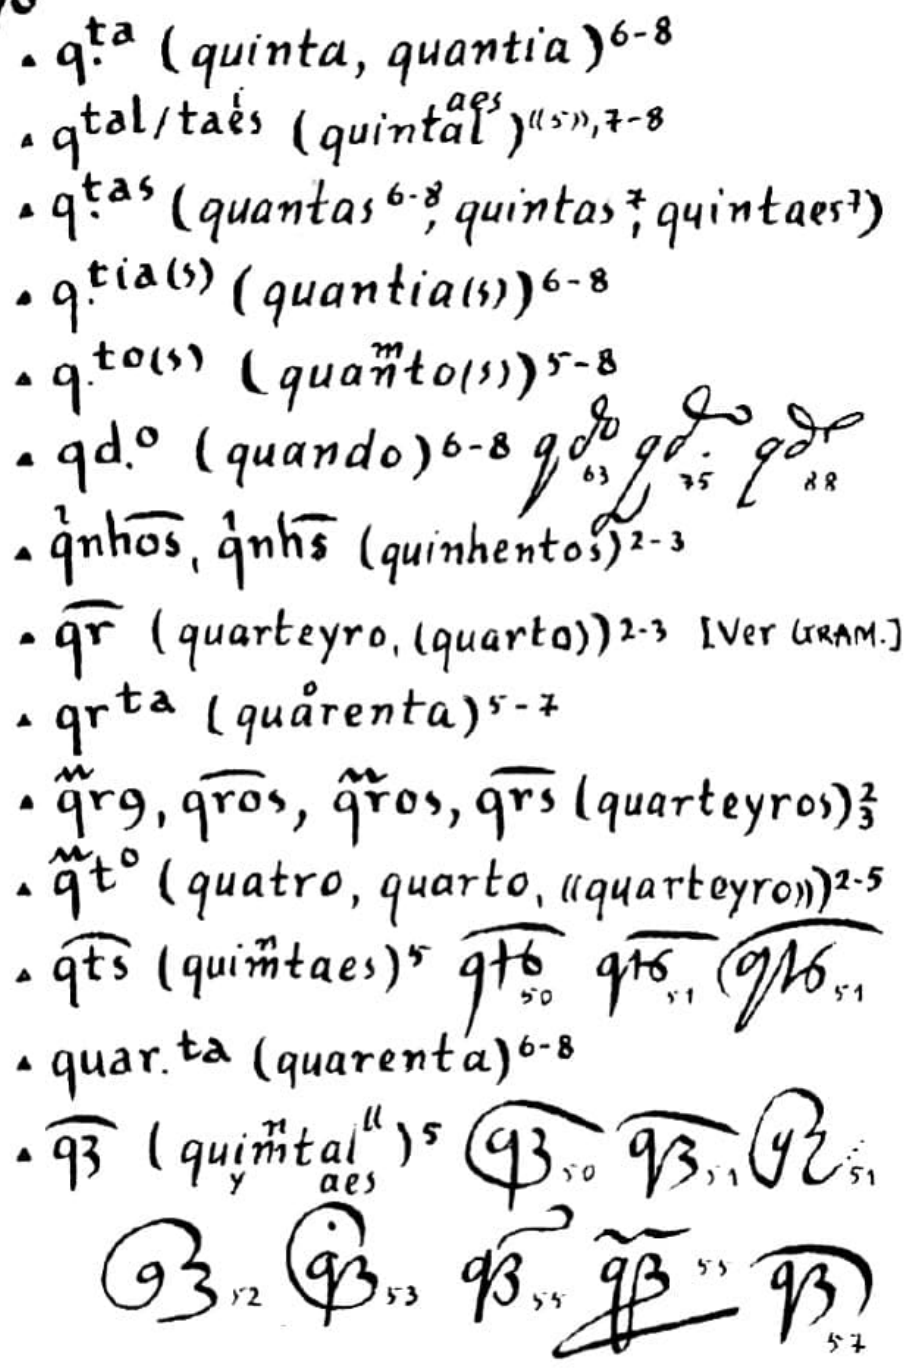 ▴ q.ᵗᵃ (quinta, quantia)⁶⁻⁸
▴ qᵗᵃˡ/ᵗᵃᵉⁱˢ (quintal aes)«⁵»,⁷⁻⁸
▴ q.ᵗᵃˢ (quantas⁶⁻⁸; quintas⁷; quintaes⁷)
▴ q.ᵗⁱᵃ⁽ˢ⁾ (quantia(s))⁶⁻⁸
▴ q.ᵗᵒ⁽ˢ⁾ (quanᵐto(s))⁵⁻⁸
▴ qd.º (quando)⁶⁻⁸ qdo 63 qd. 75 qdo 88
▴ q̍nho̅s̅, q̍nhs̅ (quinhentos)²⁻³
▴ q̅r̅ (quarteyro, (quarto))²⁻³ [Ver GRAM.]
▴ qrᵗᵃ (quaᵒrenta)⁵⁻⁷
▴ q̃rꝯ, q̅r̅o̅s, q̃ros, q̅r̅s̅ (quarteyros)²₃
▴ q̃tº (quatro, quarto, «quarteyro»)²⁻⁵
▴ q̅t̅s̅ (quimⁿtaes)⁵ q̅t̅s̅ 50 q̅t̅s̅ 51 q̅t̅s̅ 51
▴ quar.ᵗᵃ (quarenta)⁶⁻⁸
▴ q̅ꝫ̅ (quimⁿtalˡˡ)⁵ q̅ꝫ̅ 50 q̅ꝫ̅ 51 qꝫ 51
y aes
qꝫ 52 qꝫ 53 qꝫ 55 q̃ꝫ 55 q̅ꝫ̅ 57